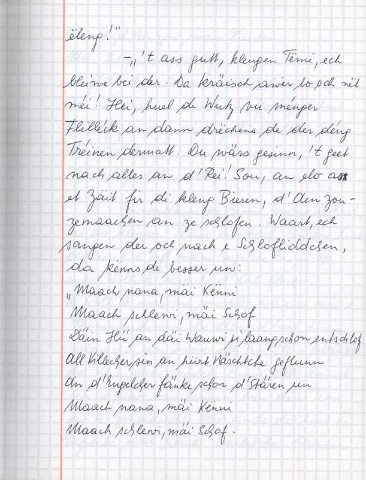 eleng!"
-„'t ass gutt, klengen Timi, ech
bleiwe bei der. Da kräisch awer lo och nët
méi! Hei, huel de Wutz vu ménger
Flilléck an dann dréchens de der déng
Tréinen dermatt. Du wärs gesinn, 't geet
nach alles an d'Rei. Sou, an elo ass
et Zäit fir di kleng Bieren, d'Aen zou-
zemaachen an ze schlofen. Waart, ech
sangen der och nach e Schlofliddchen,
da kenns de besser un:
„Maach nana, mäi Kënni
Maach schlewi, mäi Schof
Däin Hii an däi Wauwi si laang schon entschlof
All Villecher sin an hirt Näschtche geflunn
An d'Engelcher fänke schon d'Stären un
Maach nana, mäi Kënni
Maach schlewi, mäi Schof.